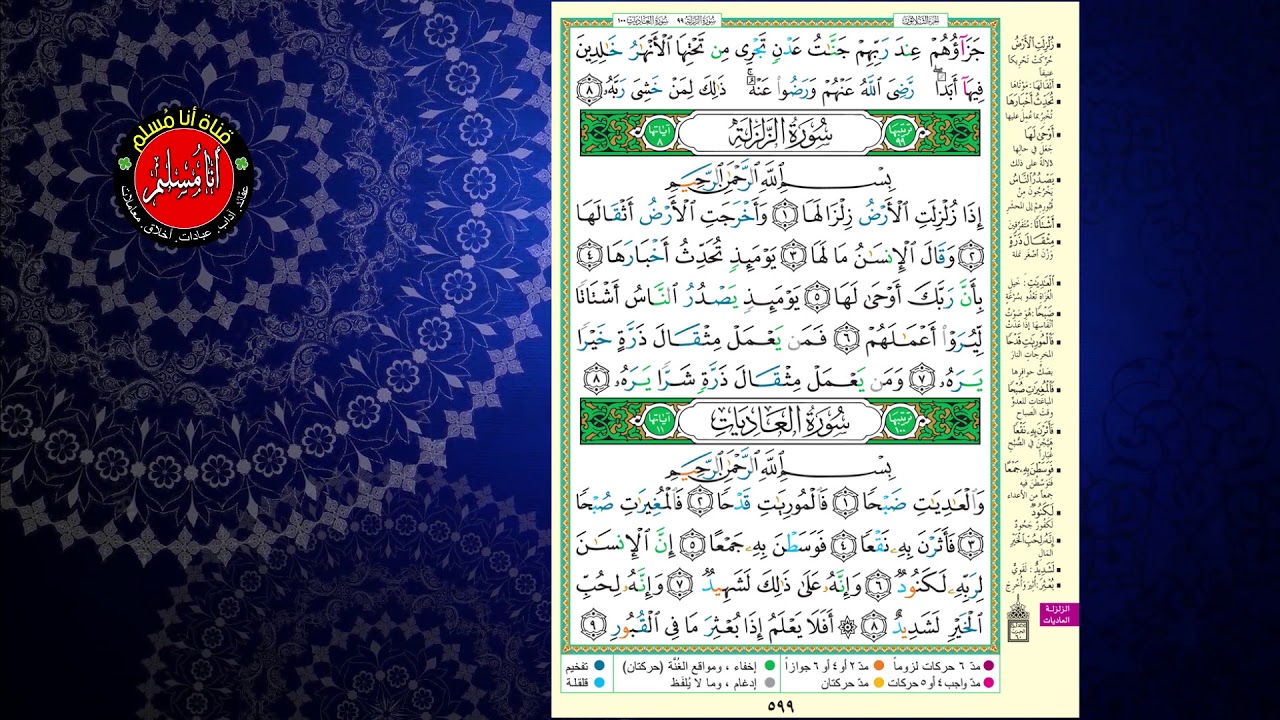 قناة أنا مُسلم
أَنَا مُسْلِمٌ
عقائد. آداب. عبادات. أخلاق. معاملات
الجزء الثلاثون
سُورَةُ الزَّلْزَلَة ٩٩ سُورَةُ العَادِيَات ١٠٠
جَزَآؤُهُمْ عِندَ رَبِّهِمْ جَنَّٰتُ عَدْنٍ تَجْرِى مِن تَحْتِهَا ٱلْأَنْهَٰرُ خَٰلِدِينَ
فِيهَآ أَبَدًا ۖ رَّضِىَ ٱللَّهُ عَنْهُمْ وَرَضُوا۟ عَنْهُ ۚ ذَٰلِكَ لِمَنْ خَشِىَ رَبَّهُۥ ٨
ترتيبها ٩٩ سُورَةُ الزَّلْزَلَةِ آياتها ٨
بِسْمِ ٱللَّهِ ٱلرَّحْمَٰنِ ٱلرَّحِيمِ
إِذَا زُلْزِلَتِ ٱلْأَرْضُ زِلْزَالَهَا ١ وَأَخْرَجَتِ ٱلْأَرْضُ أَثْقَالَهَا
٢ وَقَالَ ٱلْإِنسَٰنُ مَا لَهَا ٣ يَوْمَئِذٍ تُحَدِّثُ أَخْبَارَهَا ٤
بِأَنَّ رَبَّكَ أَوْحَىٰ لَهَا ٥ يَوْمَئِذٍ يَصْدُرُ ٱلنَّاسُ أَشْتَاتًا
لِّيُرَوْا۟ أَعْمَٰلَهُمْ ٦ فَمَن يَعْمَلْ مِثْقَالَ ذَرَّةٍ خَيْرًا
يَرَهُۥ ٧ وَمَن يَعْمَلْ مِثْقَالَ ذَرَّةٍ شَرًّا يَرَهُۥ ٨
ترتيبها ١٠٠ سُورَةُ العَادِيَاتِ آياتها ١١
بِسْمِ ٱللَّهِ ٱلرَّحْمَٰنِ ٱلرَّحِيمِ
وَٱلْعَٰدِيَٰتِ ضَبْحًا ١ فَٱلْمُورِيَٰتِ قَدْحًا ٢ فَٱلْمُغِيرَٰتِ صُبْحًا
٣ فَأَثَرْنَ بِهِۦ نَقْعًا ٤ فَوَسَطْنَ بِهِۦ جَمْعًا ٥ إِنَّ ٱلْإِنسَٰنَ
لِرَبِّهِۦ لَكَنُودٌ ٦ وَإِنَّهُۥ عَلَىٰ ذَٰلِكَ لَشَهِيدٌ ٧ وَإِنَّهُۥ لِحُبِّ
ٱلْخَيْرِ لَشَدِيدٌ ٨ ۞ أَفَلَا يَعْلَمُ إِذَا بُعْثِرَ مَا فِى ٱلْقُبُورِ ٩
زُلْزِلَتِ الْأَرْضُ
حُرِّكَتْ تَحْرِيكاً
عنيفاً
أَثْقَالَهَا: مَوْتَاهَا
تُحَدِّثُ أَخْبَارَهَا
تُخْبِرُ بما عُمِلَ عليها
أَوْحَىٰ لَهَا
جَعَلَ في حالِها
دَلالةً على ذلك
يَصْدُرُ النَّاسُ
يَخْرُجُونَ مِنْ
قُبورِهِمْ إلى المحشَرِ
أَشْتَاتًا: مُتَفَرِّقِينَ
مِثْقَالَ ذَرَّةٍ
وَزْنَ أصْغَرِ نملة
الْعَٰدِيَٰتِ: خيلِ
الغُزاةِ تَعْدُو بسُرْعَةٍ
ضَبْحًا: هُوَ صَوْتُ
أنْفَاسِهَا إذا عَدَتْ
فَالْمُورِيَٰتِ قَدْحًا
المخرجاتِ النارَ
بصَكِّ حوافِرِها
فَالْمُغِيرَٰتِ صُبْحًا
المباغتاتِ للعدوِّ
وقتَ الصباحِ
فَأَثَرْنَ بِهِ نَقْعًا
هَيَّجْنَ في الصُّبْحِ
غُبَاراً
فَوَسَطْنَ بِهِ جَمْعًا
فتَوَسَّطْنَ فيه
جمعاً من الأعداءِ
لَكَنُودٌ
لَكَفُورٌ جَحُودٌ
إِنَّهُ لِحُبِّ الْخَيْرِ
المَالِ
لَشَدِيدٌ: لَقَوِيٌّ
بُعْثِرَ: أُثِيرَ وأُخْرِجَ
الزلزلة
العاديات
مدّ ٦ حركات لزوماً مدّ ٢ أو ٤ أو ٦ جوازاً إخفاء ، ومواقع الغُنَّة (حركتان) تفخيم
مدّ واجب ٤ أو ٥ حركات مدّ حركتان إدغام ، وما لا يُلفَظ قلقلة
٥٩٩